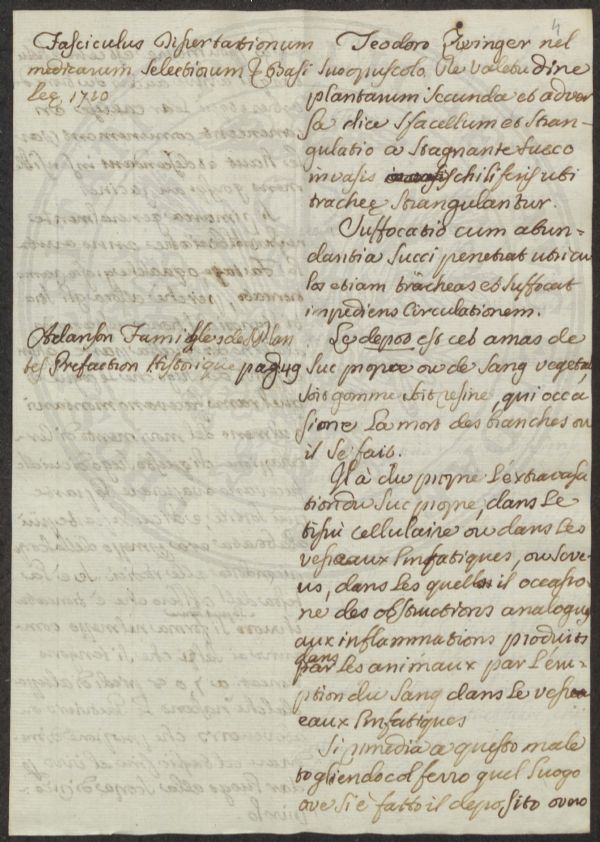 4
Fasciculus Dissertationum
medicarum Selectiorum
Leg. 1710
Teodoro Zwinger nel
suo opuscolo De valetudine
plantarum secunda et adver
sa dice Sfacellum et stran-
gulatio a stagnante succo
invasis chiliferis ubi
tracheę strangulantur.
Suffocatio cum abun-
dantia succi penetrat utricu
los etiam tracheas et suffocat
impediens Circulationem.
Adanson Familles des Plan
tes Prefaction Historique pag 49
Le depos est cet amas de
Suc propre ou de Sang vegetal
soit gomme soit resine, qui occa
sione La mort des branches ou
il se fait.
Il à du propre L'extravasa
tion du Suc propre, dans Le
tissu cellulaire ou dans Les
vesseaux Limfatiques, ou seve
us, dans Les quells il occasio
ne des obstructions analogues
aux inflammations produits
dans
par Les animaux par L'eru
ption du Sang dans Le vess
eaux Limfatiques
Si rimedia a questo male
togliendo col ferro quel luogo
ove si è fatto il deposito overo